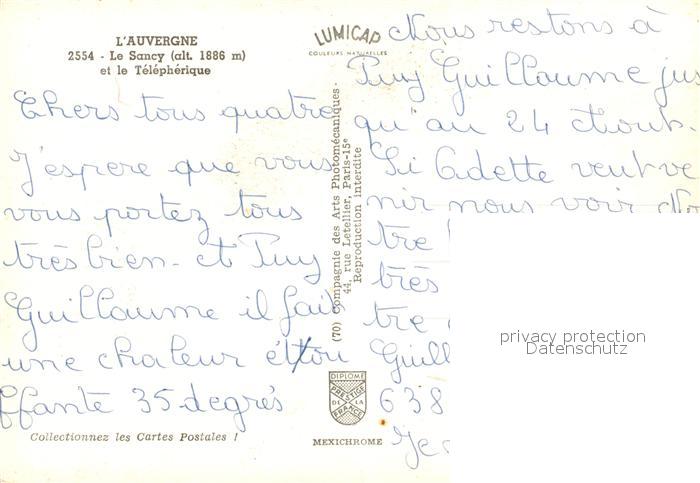 L'AUVERGNE
2554 - Le Sancy (alt. 1886 m)
et le Téléphérique
Chers tous quatre
J'espere que vous
vous portez tous
très bien - et Puy
Guillaume il fait
une chaleur étou
ffante 35 degrés
Collectionnez les Cartes Postales !
LUMICAP
COULEURS NATURELLES
(70) Compagnie des Arts Photomécaniques -
44, rue Letellier, Paris-15e
Reproduction interdite
DIPLOME
PRESTIGE
DE LA
FRANCE
MEXICHROME
Nous restons à
Puy Guillaume jus
qu'au 24 Aout.
Si Odette veut ve
nir nous voir No
tre
très
tre
Guill
638
Je
privacy protection
Datenschutz